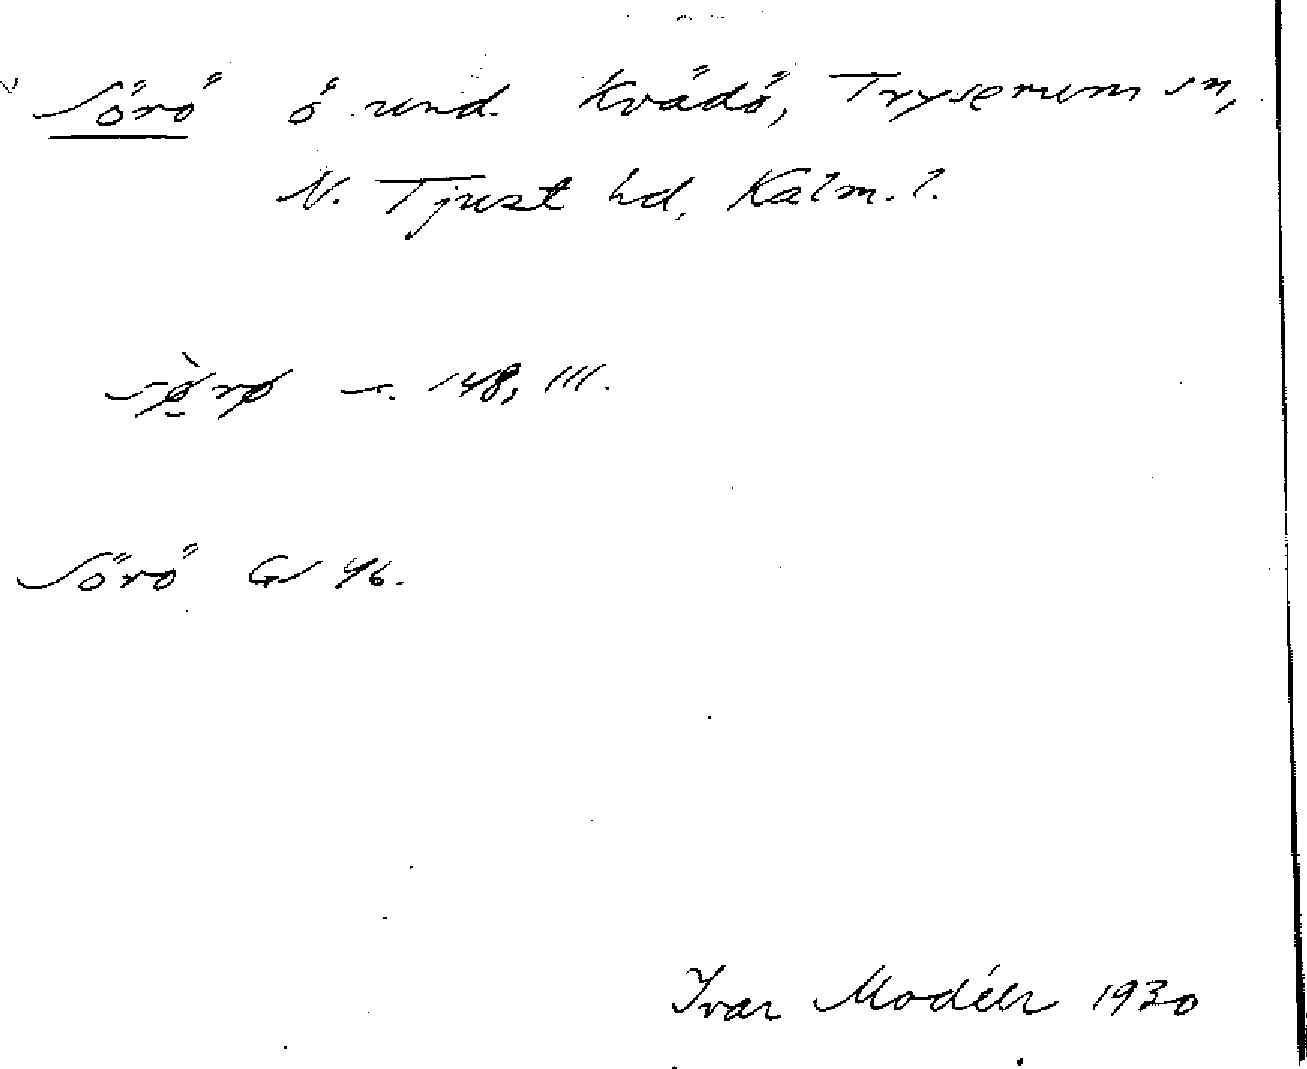 Sörö ö und. Kvädö, Tryserum sn,
N. Tjust hd, Kalm. l.
148, III.
Sörö GS 46.
Ivar Modéer 1930